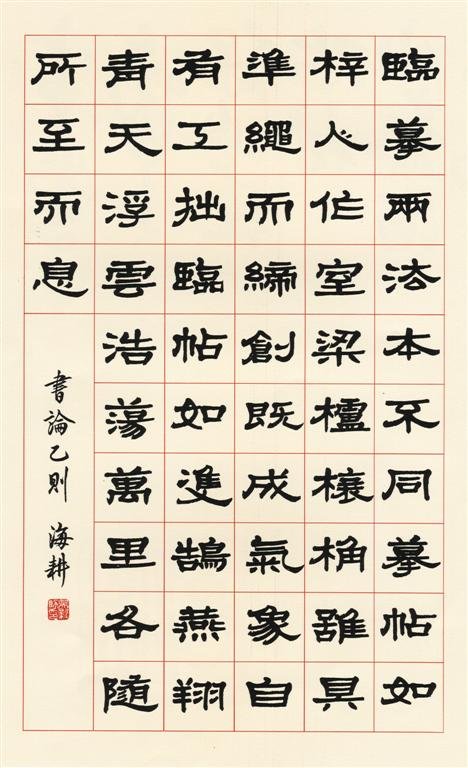 臨摹兩法本不同摹帖如
梓人作室梁櫨榱桷雖具
準繩而締創既成氣象自
有工拙臨帖如進鵠燕翔
青天浮雲浩蕩萬里各隨
所至而息
書論乙則 海耕